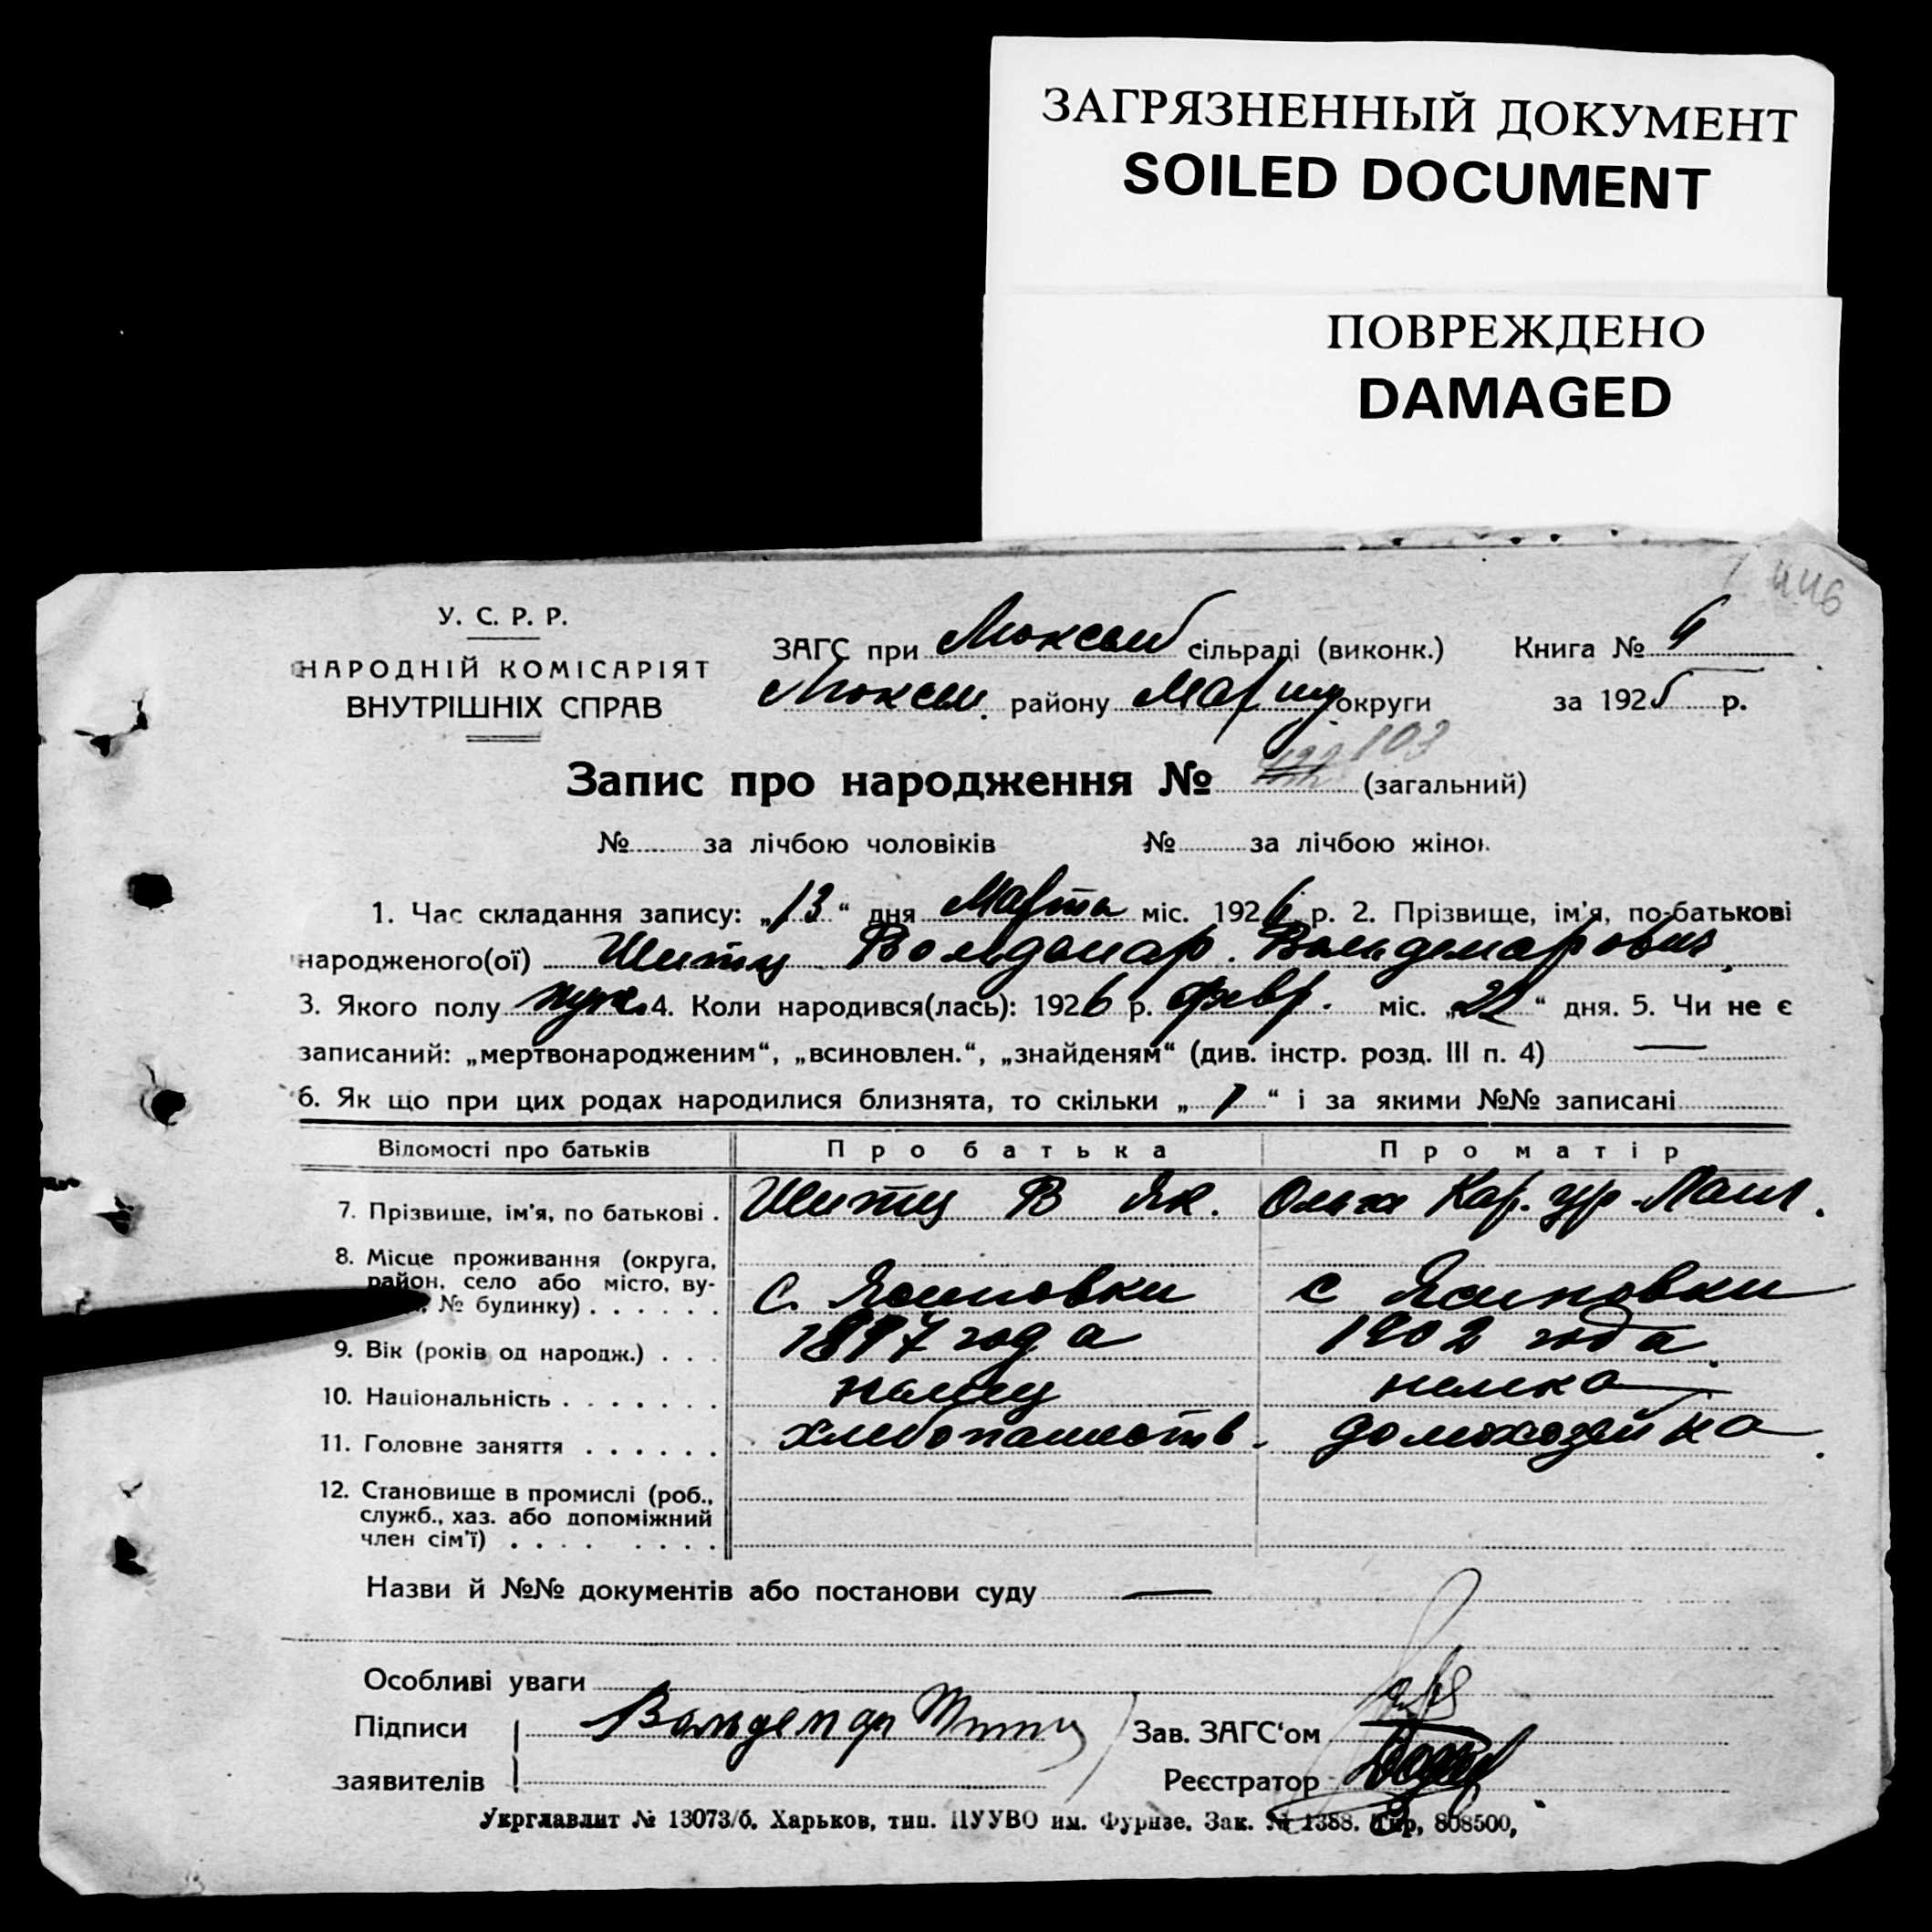 ЗАГРЯЗНЕННЫЙ ДОКУМЕНТ
SOILED DOCUMENT
ПОВРЕЖДЕНО
DAMAGED
446
У. С. Р. Р.
НАРОДНІЙ КОМІСАРІЯТ
ВНУТРІШНІХ СПРАВ
ЗАГС при сільраді (виконк.) Книга №
району Мариу округи за 1925 р.
Запис про народження № 103 (загальний)
№ за лічбою чоловіків № за лічбою жінок
1. Час складання запису: „13“ дня Марта міс. 1926 р. 2. Прізвище, ім'я, по-батькові
народженого(ої) Шитц Вольдемар. Вольдемарович
3. Якого полу муж. 4. Коли народився(лась): 1926 р. февр. міс. „22“ дня. 5. Чи не є
записаний: „мертвонародженим“, „всиновлен.“, „знайденям“ (див. інстр. розд. III п. 4) —
6. Як що при цих родах народилися близнята, то скільки „1“ і за якими №№ записані
Відомості про батьків Про батька Про матір
7. Прізвище, ім'я, по батькові . Шитц В Як. Ольга Кар. ур.
8. Місце проживання (округа,
район, село або місто, ву-
№ будинку) . . . . . . С. Ясиновки с Ясиновки
9. Вік (років од народж.) . . . 1897 года 1902 года
10. Національність . . . . . . . немец немка
11. Головне заняття . . . . . . хлебопашеств. домохозяйка
12. Становище в промислі (роб.,
служб., хаз. або допоміжний
член сім'ї) . . . . . . . .
Назви й №№ документів або постанови суду —
Особливі уваги
Підписи Вольдемар Шитц Зав. ЗАГС‘ом
заявителів Реєстратор
Укрглавлит № 13073/б. Харьков, тип. ПУУВО им. Фрунзе. Зак. № 1388. Тир, 808500,